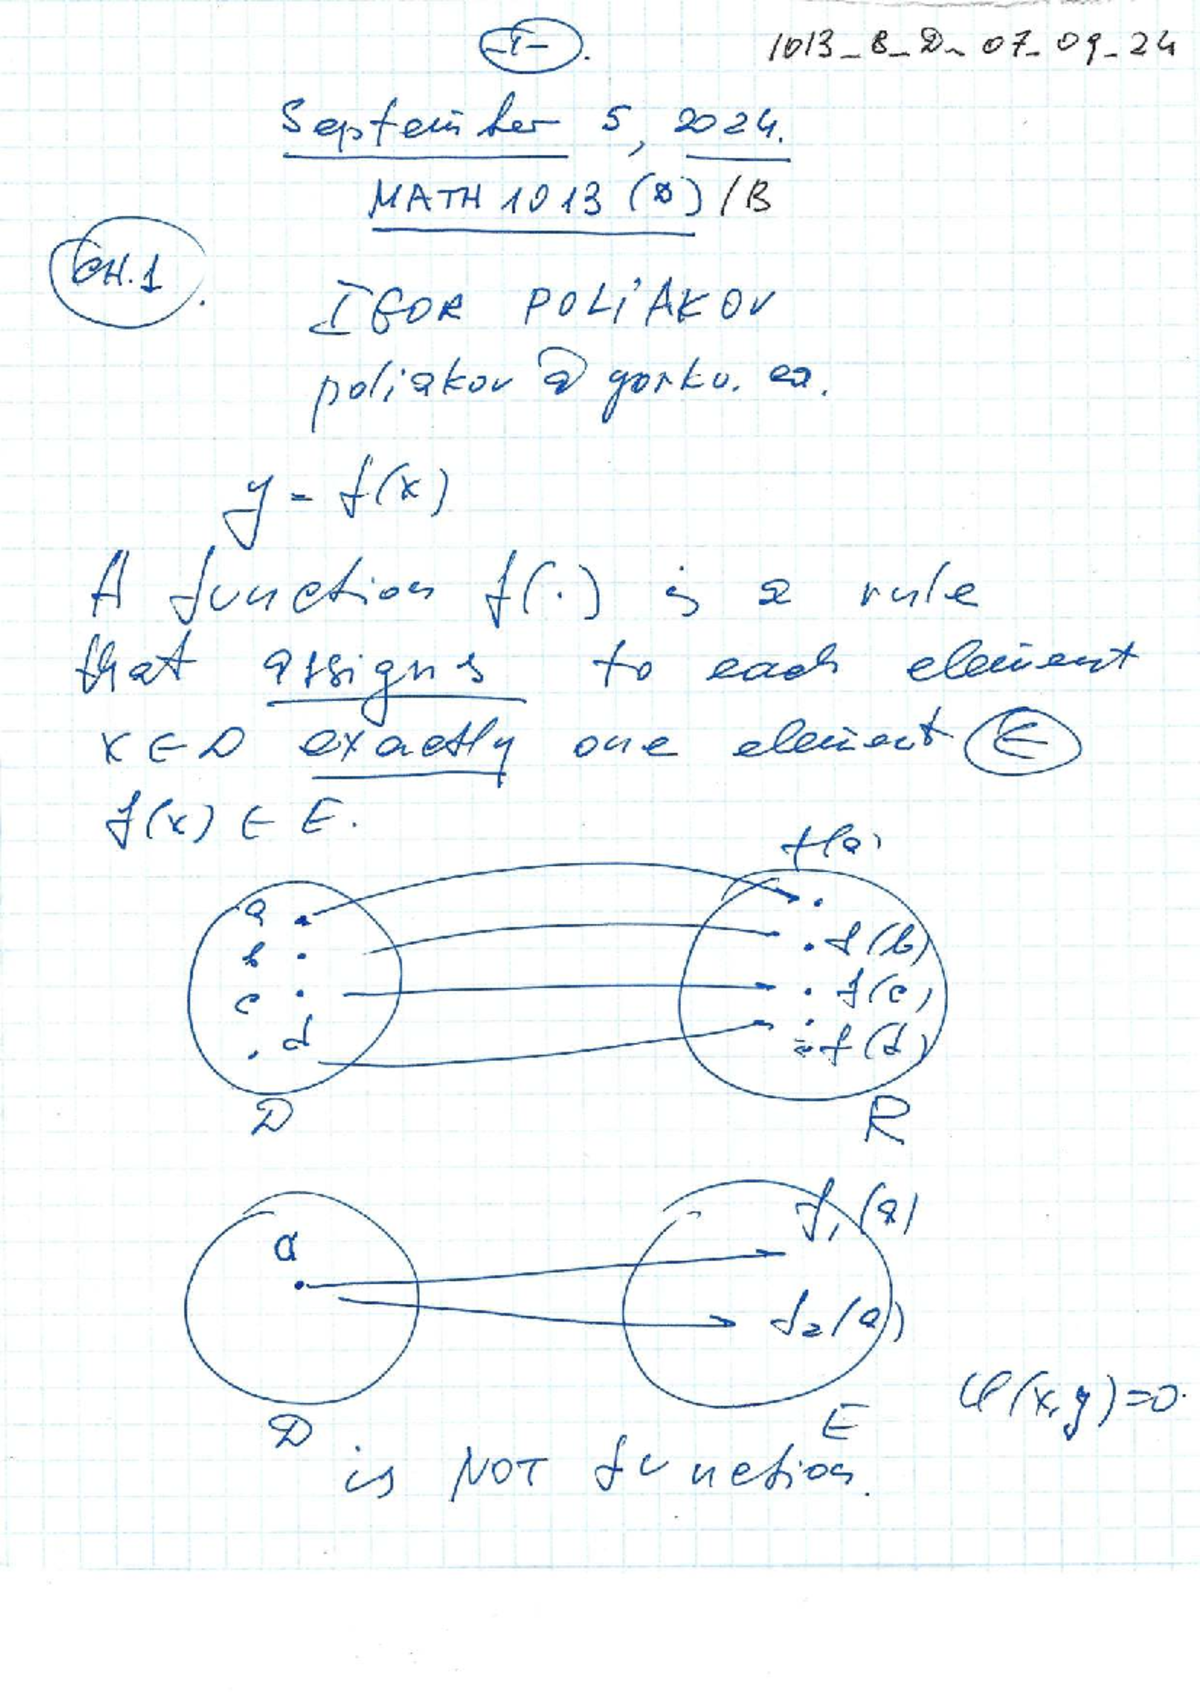 -1-.
1013_B_D_07_09_24
September 5, 2024.
MATH 1013 (D) /B
CH.1.
IGOR POLIAKOV
poliakov @ yorku. ca.
y = f(x)
A function f(.) is a rule
that assigns to each element
x ∈ D exactly one element E
f(x) ∈ E.
f(a)
a
b f(b)
c f(c)
d f(d)
D R
a f₁(a)
f₂(a)
φ(x,y)=0.
D E
is NOT function.